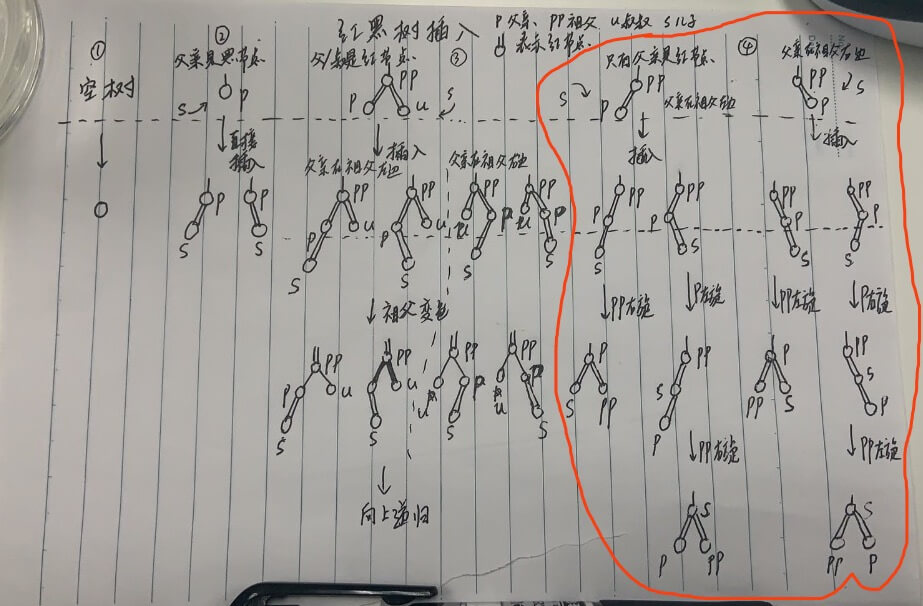 红黑树插入
P父亲、PP祖父 U叔叔 S儿子
表示红节点.
①
空树
②
父亲是黑节点
S
P
直接
插入
P
P
S
S
父/叔是红节点.
③
PP
P
U
S
插入
父亲在祖父左边
父亲在祖父右边
PP
PP
PP
PP
P
U
P
U
U
P
U
P
S
S
S
S
祖父变色
PP
PP
PP
PP
P
U
U
U
P
U
P
S
S
S
S
向上递归
只有父亲是红节点.
④
父亲在祖父右边
S
PP
P
父亲在祖父左边
PP
P
S
插入
插入
PP
PP
PP
PP
P
P
P
P
S
S
S
S
PP右旋
P左旋
PP左旋
P右旋
P
PP
P
PP
S
PP
S
PP
S
S
P
P
PP右旋
PP左旋
S
S
P
PP
PP
P